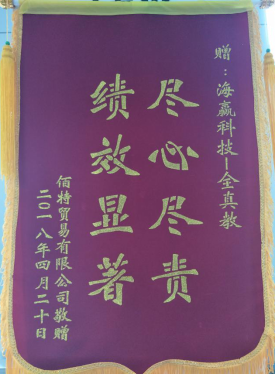 赠：海赢科技—全真教
尽心尽责
绩效显著
佰特贸易有限公司敬赠
二〇一八年四月二十日